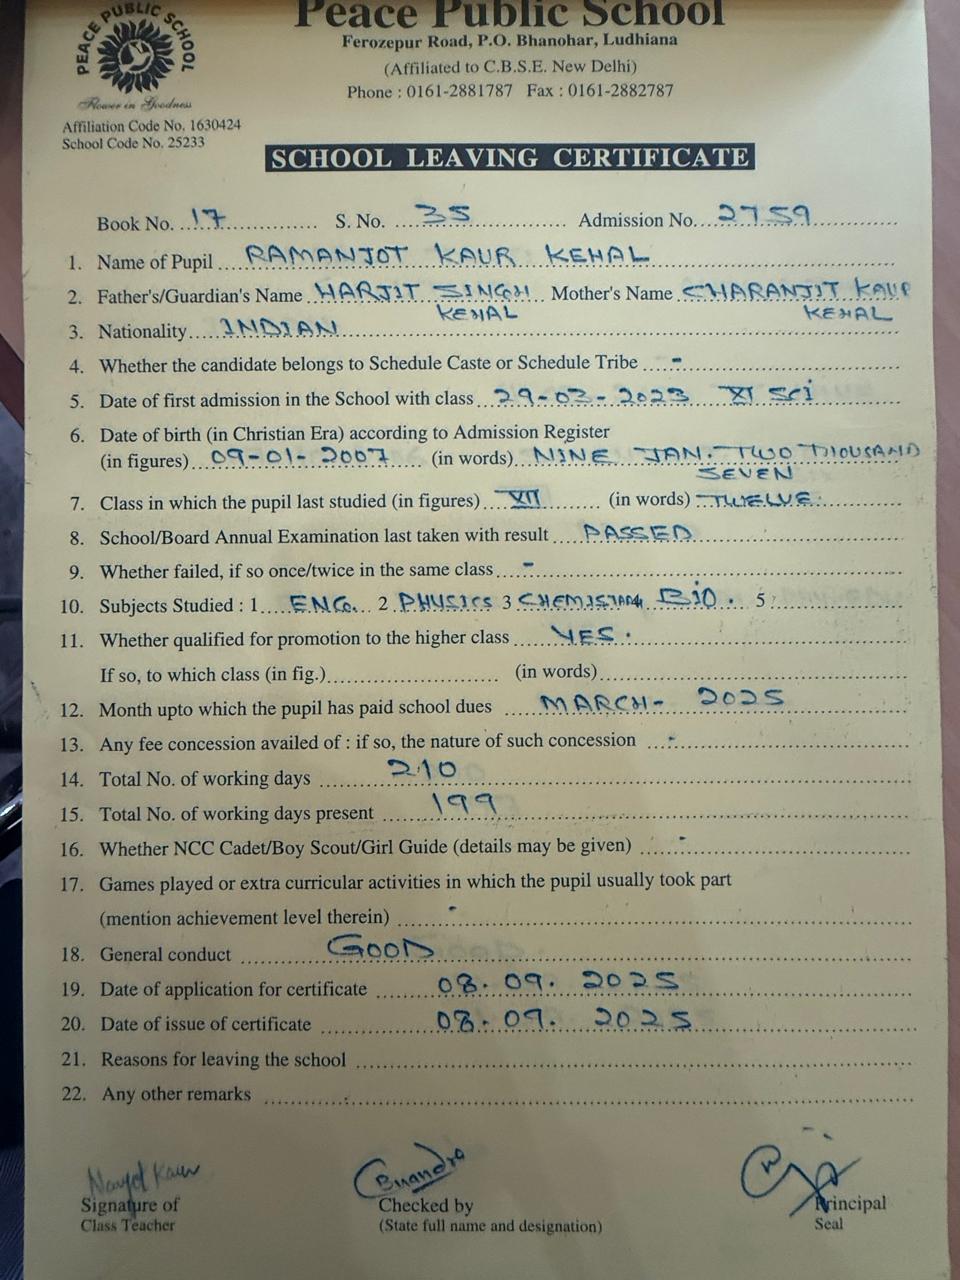 Peace Public School
PEACE PUBLIC SCHOOL
Flower in Goodness
Ferozepur Road, P.O. Bhanohar, Ludhiana
(Affiliated to C.B.S.E. New Delhi)
Phone : 0161-2881787 Fax : 0161-2882787
Affiliation Code No. 1630424
School Code No. 25233
SCHOOL LEAVING CERTIFICATE
Book No. 17 S. No. 35 Admission No. 2759
1. Name of Pupil RAMANJOT KAUR KEHAL
2. Father's/Guardian's Name HARJIT SINGH KEHAL Mother's Name CHARANJIT KAUR KEHAL
3. Nationality INDIAN
4. Whether the candidate belongs to Schedule Caste or Schedule Tribe -
5. Date of first admission in the School with class 29-03-2023 XI Sci
6. Date of birth (in Christian Era) according to Admission Register
(in figures) 09-01-2007 (in words) NINE JAN. TWO THOUSAND SEVEN
7. Class in which the pupil last studied (in figures) XII (in words) TWELVE.
8. School/Board Annual Examination last taken with result PASSED
9. Whether failed, if so once/twice in the same class -
10. Subjects Studied : 1 ENG. 2 PHYSICS 3 CHEMISTRY 4 BIO. 5
11. Whether qualified for promotion to the higher class YES.
If so, to which class (in fig.) (in words)
12. Month upto which the pupil has paid school dues MARCH- 2025
13. Any fee concession availed of : if so, the nature of such concession -
14. Total No. of working days 210
15. Total No. of working days present 199
16. Whether NCC Cadet/Boy Scout/Girl Guide (details may be given) -
17. Games played or extra curricular activities in which the pupil usually took part
(mention achievement level therein) -
18. General conduct GOOD
19. Date of application for certificate 08.09.2025
20. Date of issue of certificate 08.09.2025
21. Reasons for leaving the school
22. Any other remarks
Navjot Kaur
Chandra
Signature of Class Teacher
Checked by
(State full name and designation)
Principal
Seal